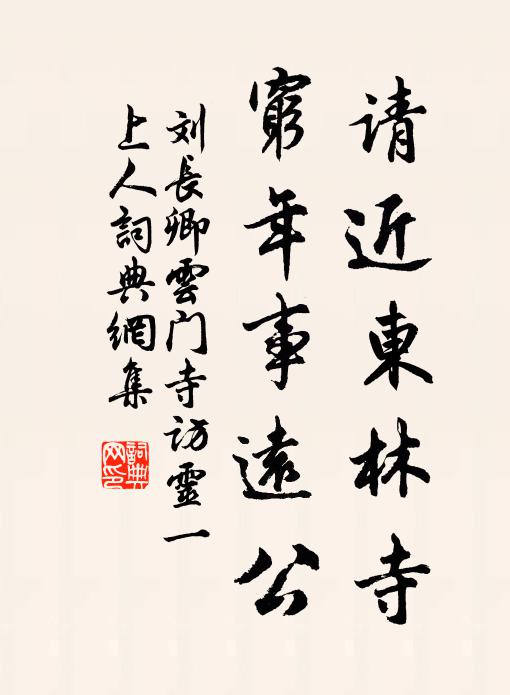 请近東林寺
窮年事遠公
刘長卿雲门寺访靈一
上人詞典網集
詞典
网印